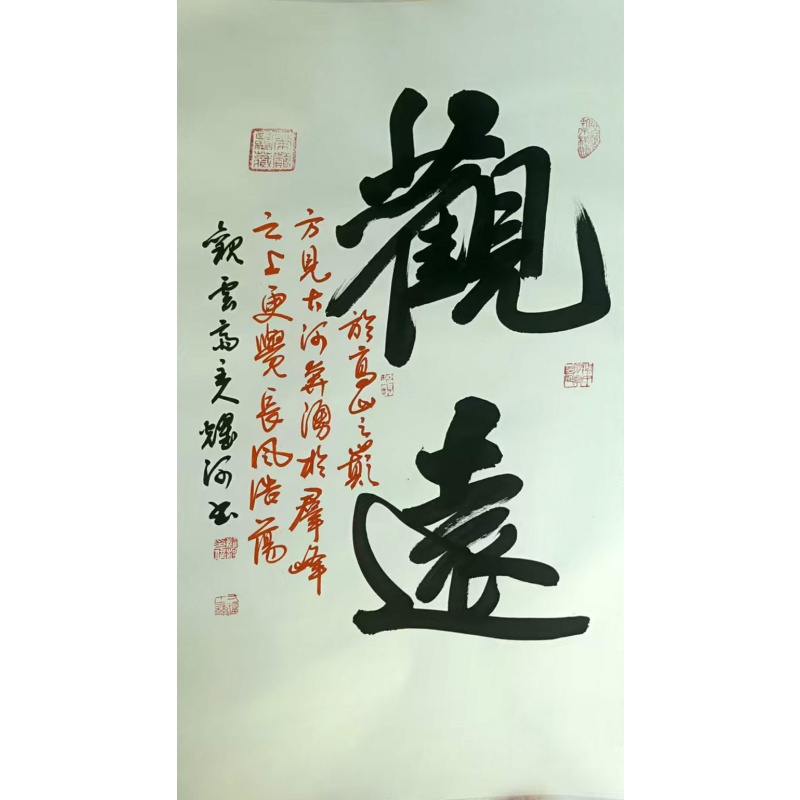 觀遠
於高山之巔
方見大河奔湧於羣峰
之上更覺長風浩蕩
觀雲高主人耀河書